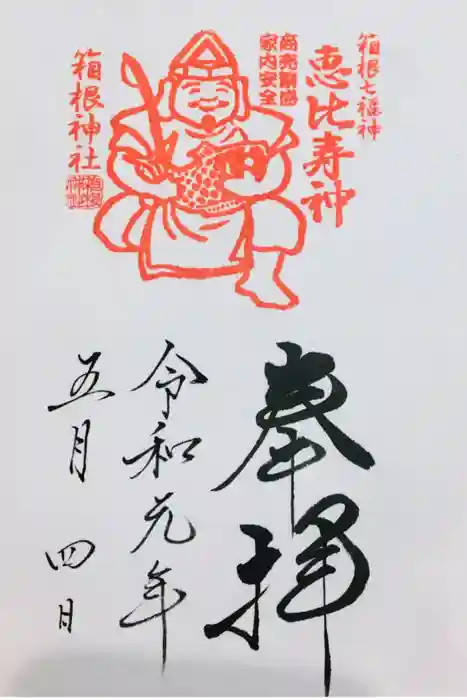 箱根七福神
恵比寿神
商売繁盛
家内安全
箱根神社
奉拝
令和元年
五月 四日